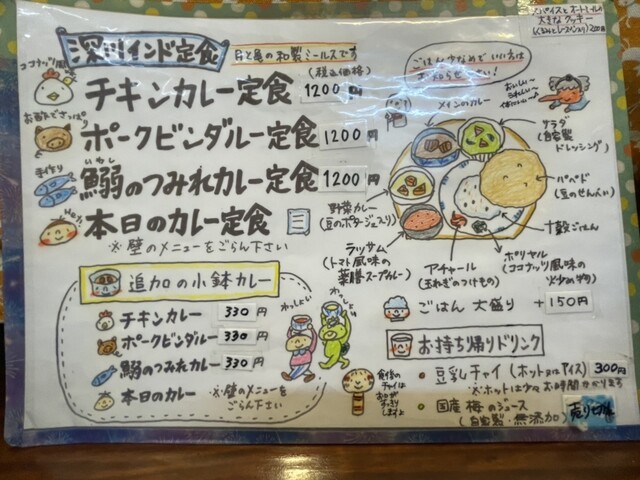 スパイスとオートミールの
大きなクッキー
(くるみとレーズン入り) 200円
深川インド定食
(税込価格)
ごはん少なめで いい方は
お知らせ下さい!
ココナッツ風味
チキンカレー定食 1200円
お酢でさっぱり
ポークビンダルー定食 1200円
手作り
いわし
鰯のつみれカレー定食 1200円
本日のカレー定食
※壁のメニューをごらん下さい
メインのカレー
サラダ
(自家製
ドレッシング)
パパド
(豆のせんべい)
十穀ごはん
ポリヤル
(ココナッツ風味の
炒め物)
アチャール
(玉ねぎのつけもの)
ラッサム
(トマト風味の
薬膳スープカレー)
野菜カレー
(豆のポタージュスリ)
追加の小鉢カレー
チキンカレー 330円
ポークビンダルー 330円
鰯のつみれカレー 330円
本日のカレー ※壁のメニューを
ごらん下さい
わっしょい
わっしょい
ごはん 大盛り +150円
お持ち帰りドリンク
食後の
チャイは
・豆乳チャイ (ホット又はアイス) 300円
※ホットは少々お時間かかります
・国産 梅のジュース
(自家製・無添加)
売り切れ